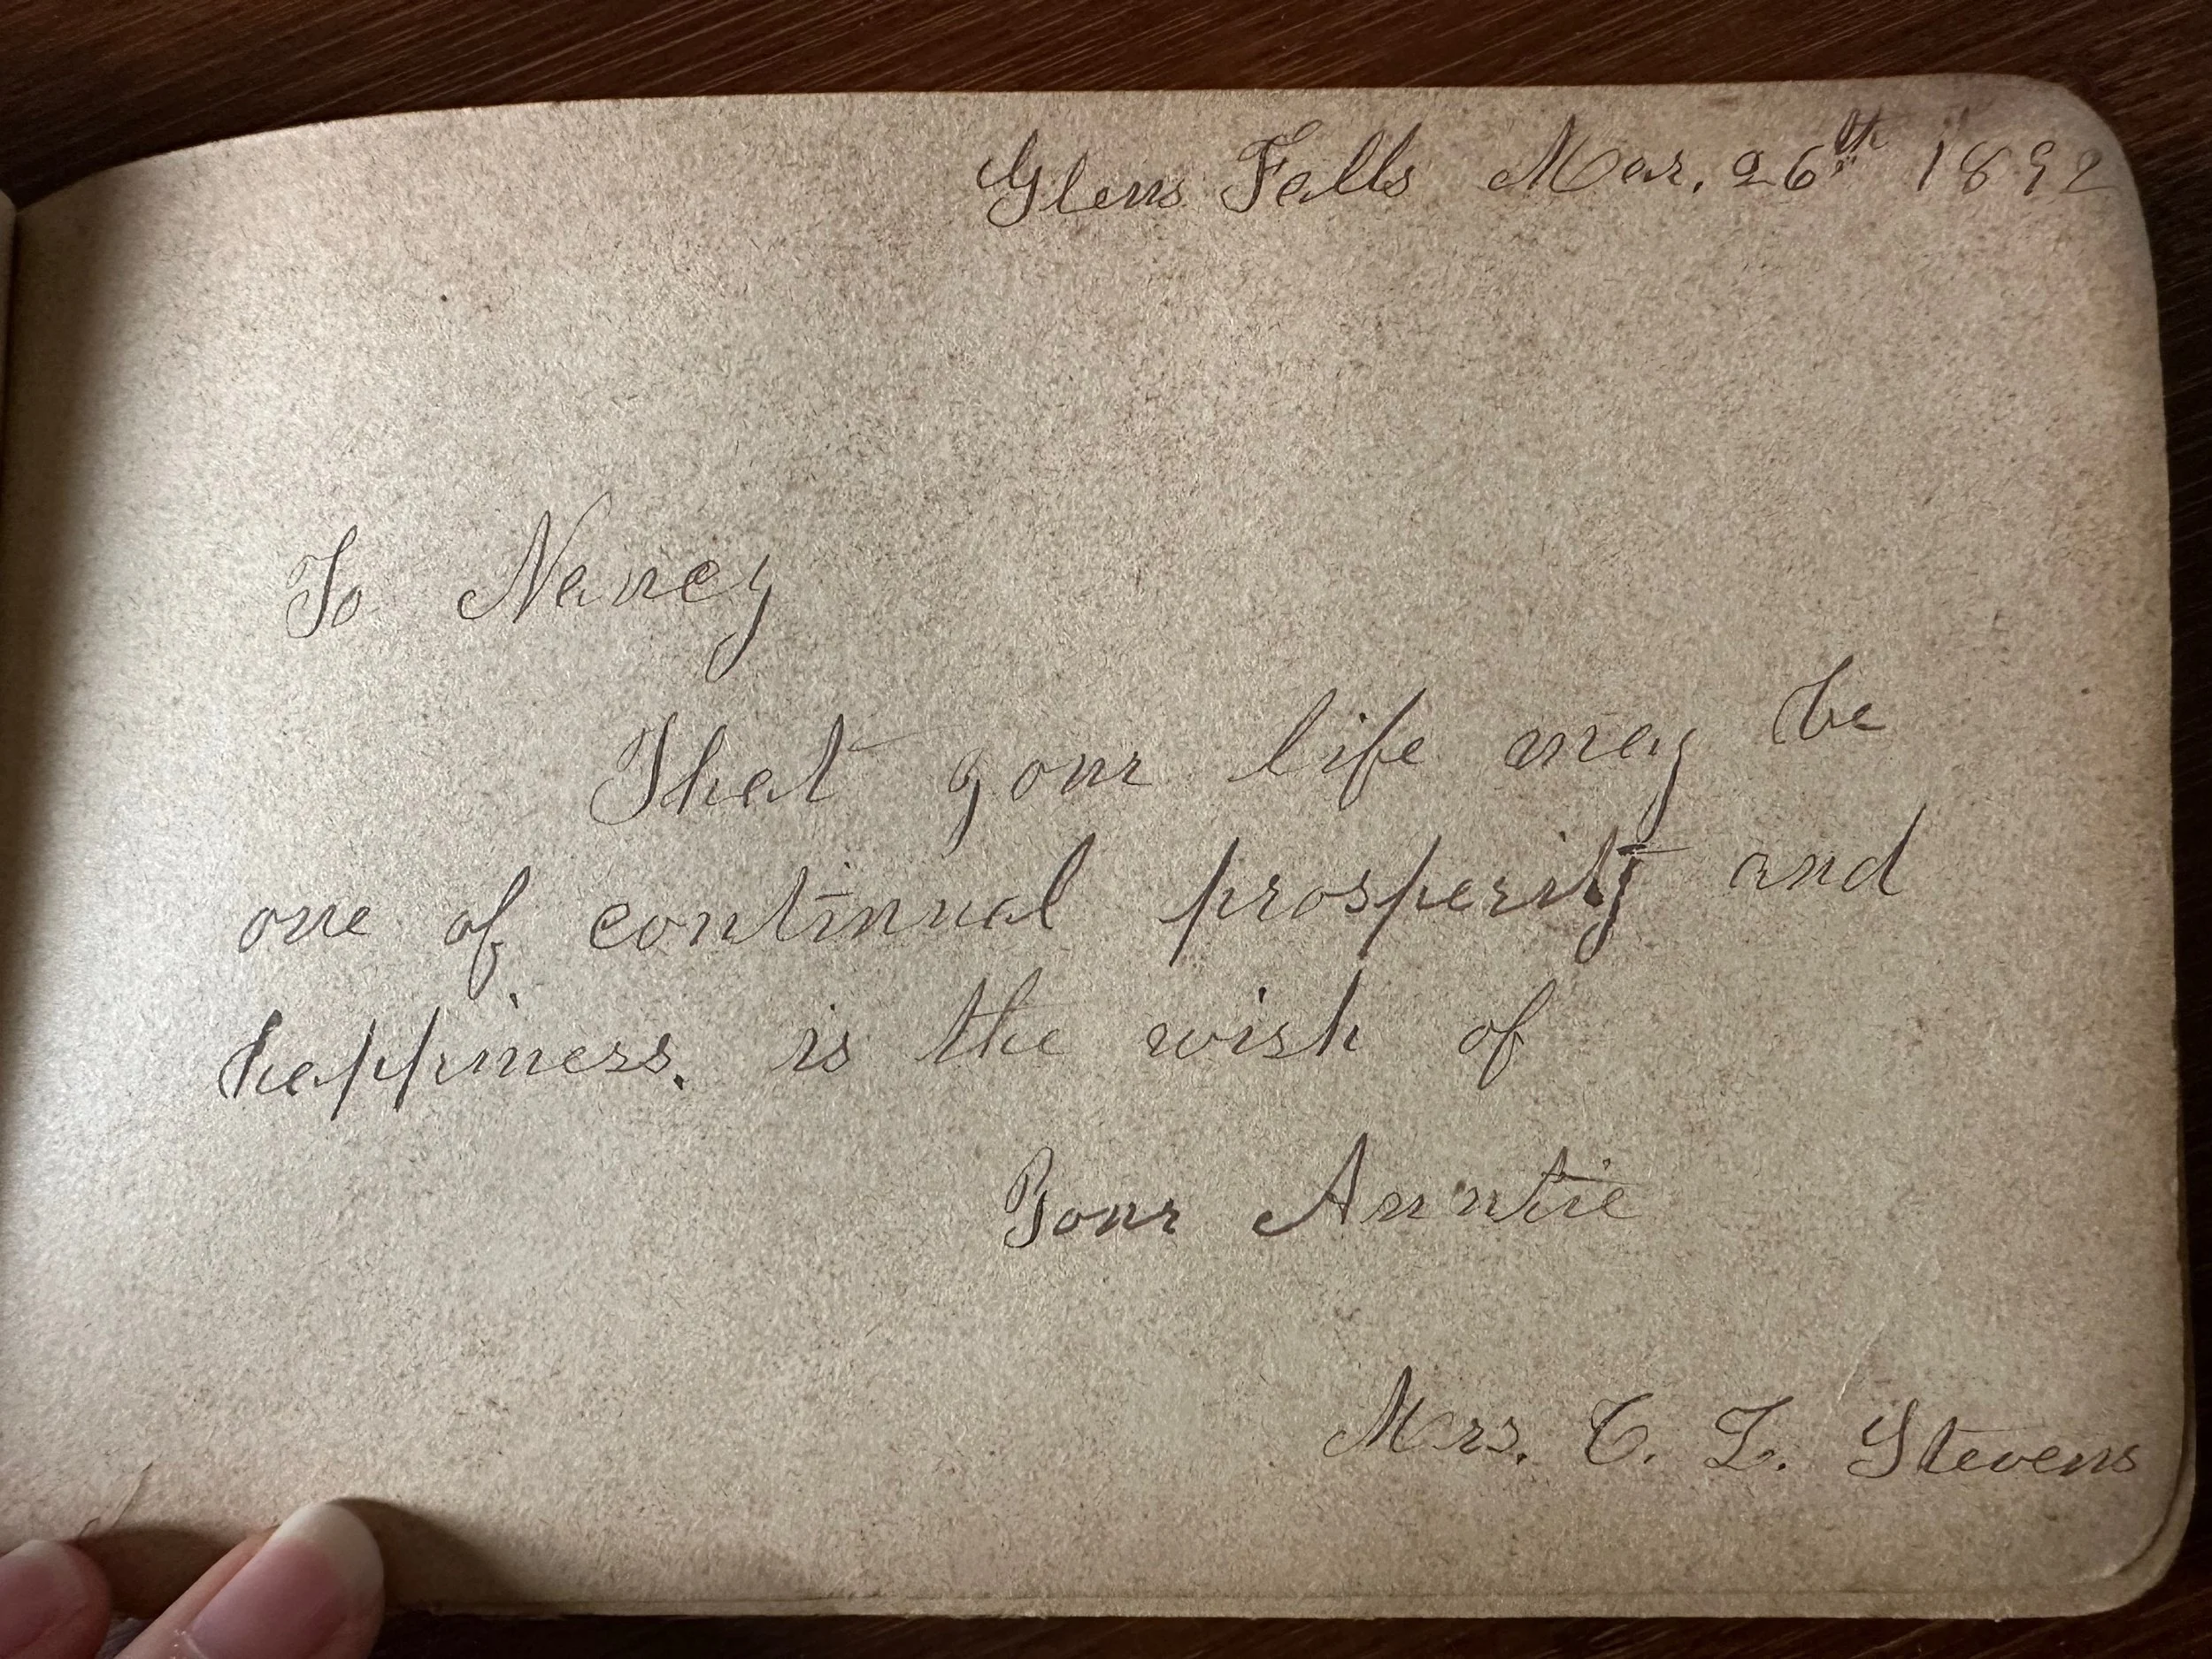 Glens Falls Mar. 26th 1892
To Nancy
That your life may be
one of continual prosperity and
happiness. is the wish of
Your Auntie
Mrs. C. L. Stevens